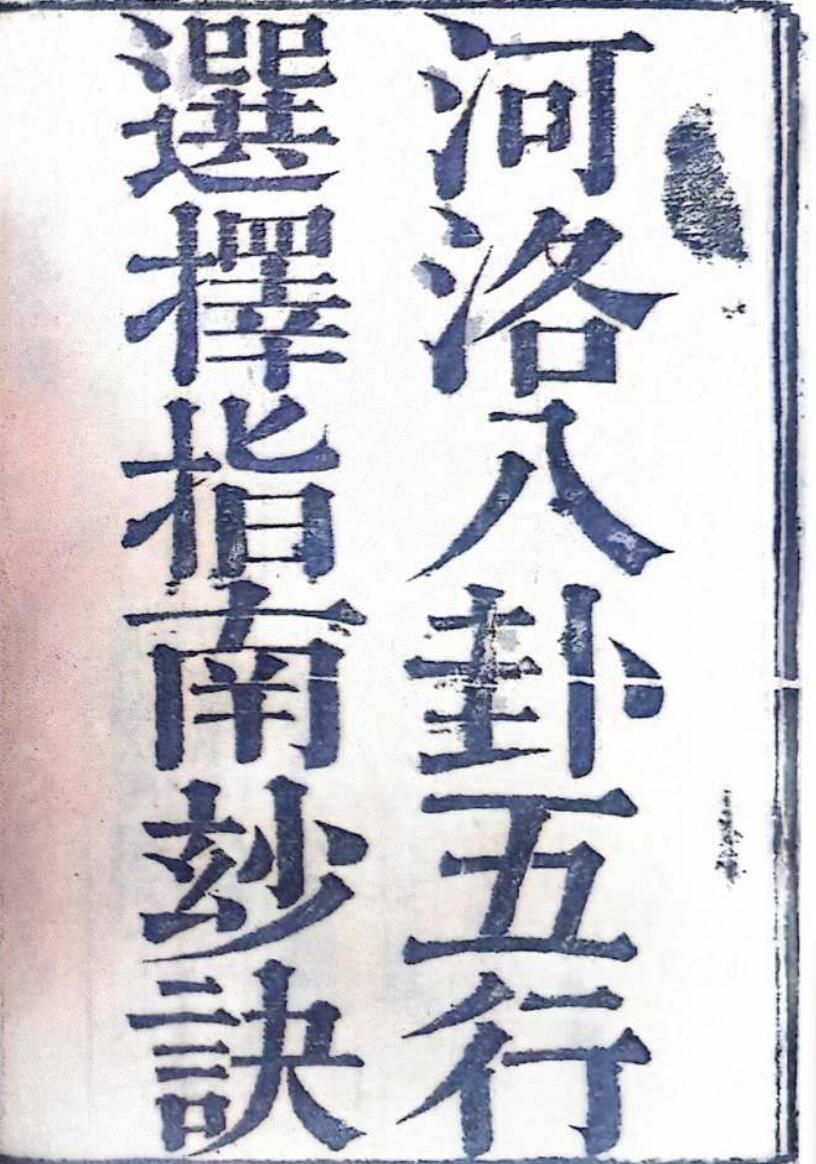 河洛八卦五行
選擇指南玅訣